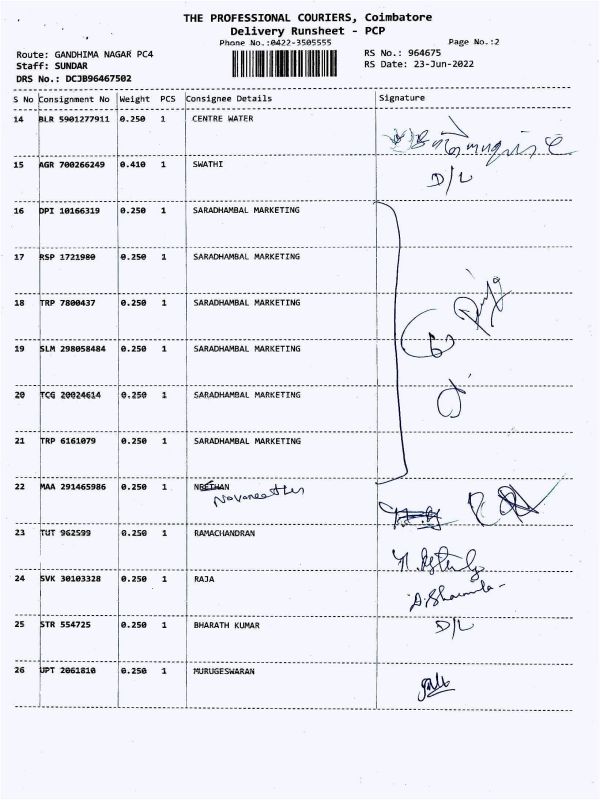 THE PROFESSIONAL COURIERS, Coimbatore
Delivery Runsheet - PCP
Phone No.:0422-3505555 Page No.:2
Route: GANDHIMA NAGAR PC4 RS No.: 964675
Staff: SUNDAR RS Date: 23-Jun-2022
DRS No.: DCJB96467502
S No Consignment No Weight PCS Consignee Details Signature
14 BLR 5901277911 0.250 1 CENTRE WATER
15 AGR 700266249 0.410 1 SWATHI D/L
16 DPI 10166319 0.250 1 SARADHAMBAL MARKETING
17 RSP 1721980 0.250 1 SARADHAMBAL MARKETING
18 TRP 7800437 0.250 1 SARADHAMBAL MARKETING
19 SLM 298058484 0.250 1 SARADHAMBAL MARKETING
20 TCG 20024614 0.250 1 SARADHAMBAL MARKETING
21 TRP 6161079 0.250 1 SARADHAMBAL MARKETING
22 MAA 291465986 0.250 1 NEETHAN
Navaneethan
23 TUT 962599 0.250 1 RAMACHANDRAN
24 SVK 30103328 0.250 1 RAJA A.Sharmila
25 STR 554725 0.250 1 BHARATH KUMAR D/L
26 UPT 2061810 0.250 1 MURUGESWARAN